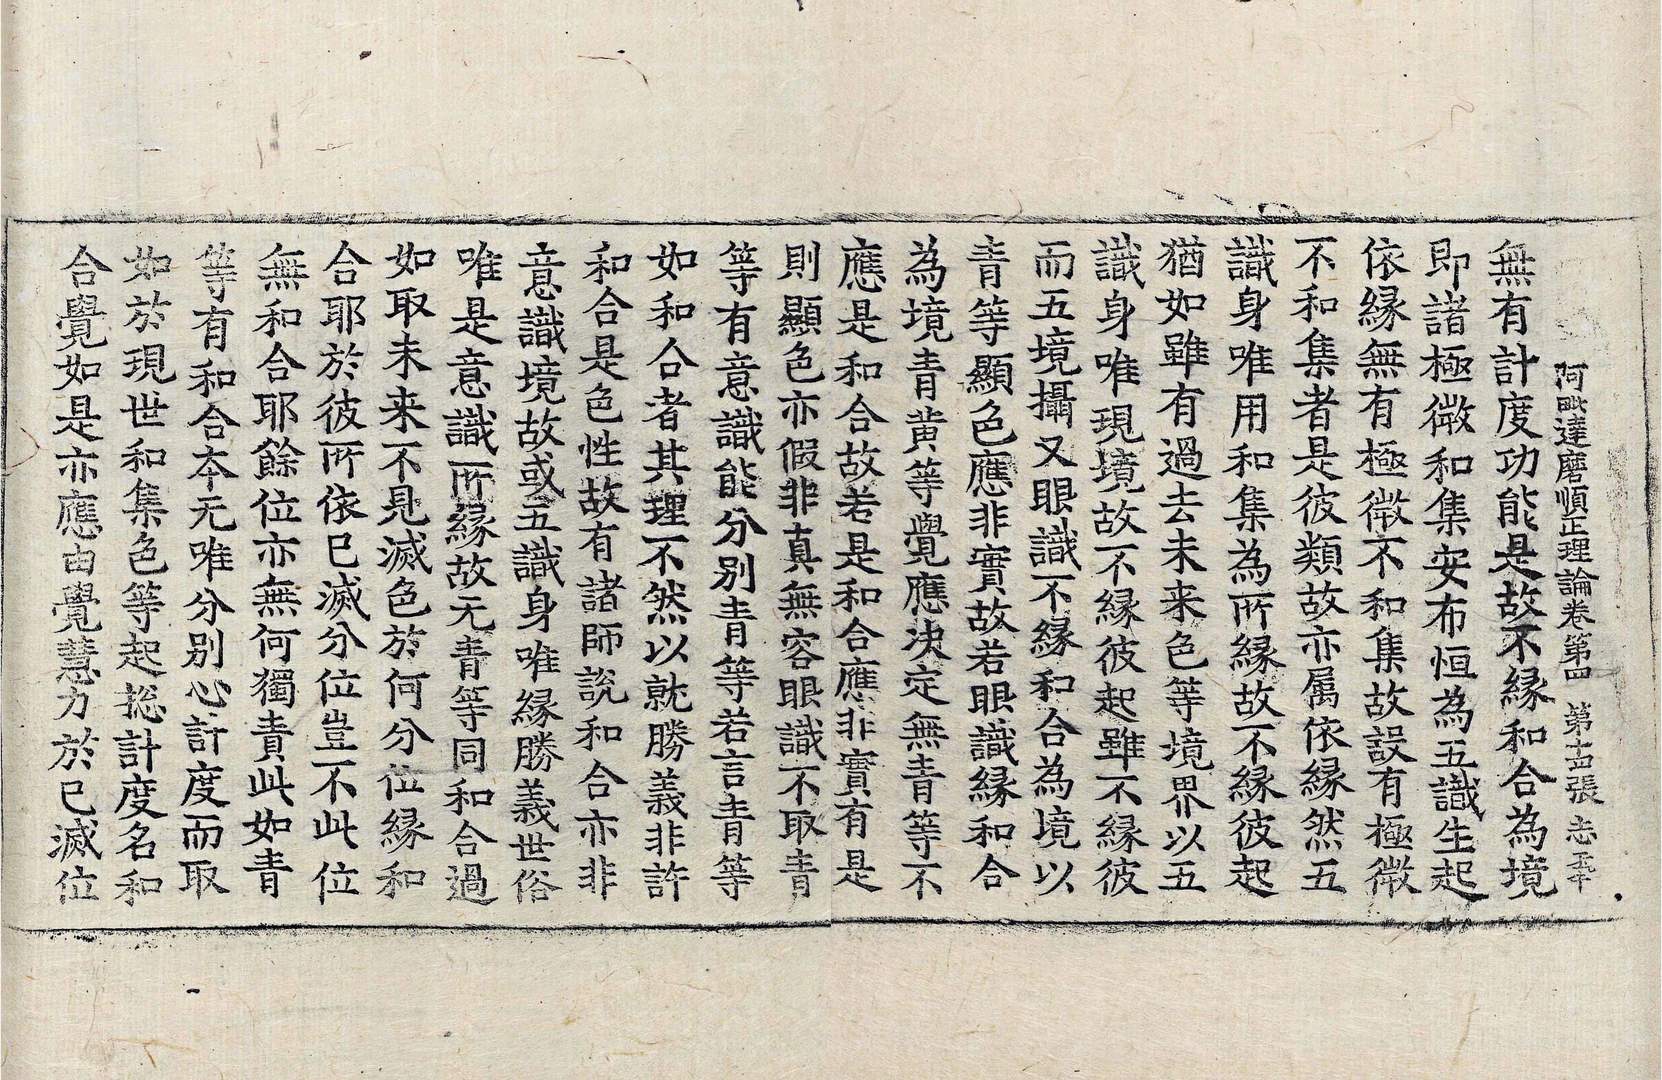 阿毗達磨順正理論卷第四 第十四張 志
無有計度功能是故不緣和合為境
即諸極微和集安布恒為五識生起
依緣無有極微不和集故設有極微
不和集者是彼類故亦属依緣然五
識身唯用和集為所緣故不緣彼起
猶如雖有過去未来色等境界以五
識身唯現境故不緣彼起雖不緣彼
而五境攝又眼識不緣和合為境以
青等顯色應非實故若眼識緣和合
為境青黄等覺應决定無青等不
應是和合故若是和合應非實有是
則顯色亦假非真無容眼識不取青
等有意識能分别青等若言青等
如和合者其理不然以就勝義非許
和合是色性故有諸師說和合亦非
意識境故或五識身唯緣勝義世俗
唯是意識所緣故无青等同和合過
如取未来不見滅色於何分位緣和
合耶於彼所依已滅分位豈不此位
無和合耶餘位亦無何獨責此如青
等有和合本无唯分别心計度而取
如於現世和集色等起揔計度名和
合覺如是亦應由覺慧力於已滅位